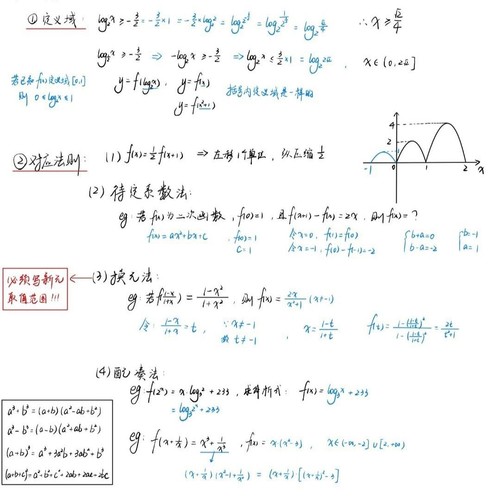 ① 定义域: log₂x ≥ -3/2 = -3/2 × 1 = -3/2 × log₂2 = log₂2^(-3/2) = log₂ = log₂ √2/4 ∴ x ≥ √2/4
log½x ≥ -3/2 ⇒ -log₂x ≥ -3/2 ⇒ log₂x ≤ 3/2 × 1 = log₂2√2 , x ∈ (0, 2√2]
若已知 f(x) 定义域 [0,1]
则 0 ≤ log₂x ≤ 1
y = f(log₂x), y = f(x)
y = f(x²+1)
括号内定义域是一样的
4
2
-1 0 1 2 x
② 对应法则: (1) f(x) = ½ f(x+1) ⇒ 左移1个单位, 纵压缩 ½
(2) 待定系数法:
eg: 若 f(x) 为二次函数, f(0)=1, 且 f(x+1) - f(x) = 2x, 则 f(x) = ?
f(x) = ax²+bx+c , f(0)=1 令 x=0, f(1)=f(0) { b+a=0 { b=-1
c=1 令 x=-1, f(0)-f(-1)=-2 b-a=-2 a=1
必须写新元
取值范围!!!
(3) 换元法:
eg: 若 f(1-x/1+x) = 1-x²/1+x² , 则 f(x) = 2x/x²+1 (x≠-1)
令: 1-x/1+x = t , ∵ x≠-1 x = 1-t/1+t f(t) = 1-(1-t/1+t)²/1+(1-t/1+t)² = 2t/t²+1
故 t≠-1 ,
(4) 配凑法:
eg: f(2ˣ) = x·log₃2 + 233 , 求解析式: f(x) = log₃x + 233
= log₃2ˣ + 233
eg: f(x+1/x) = x³+1/x³ , f(x) = x(x²-3) , x ∈ (-∞,-2] ∪ [2,+∞)
(x+1/x)(x²-1+1/x²) = (x+1/x)[(x+1/x)²-3]
a³+b³ = (a+b)(a²-ab+b²)
a³-b³ = (a-b)(a²+ab+b²)
(a+b)³ = a³+3a²b+3ab²+b³
(a+b+c)² = a²+b²+c²+2ab+2ac+2bc